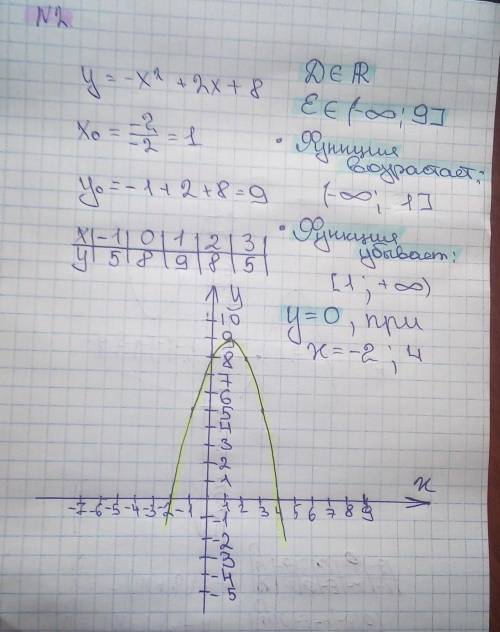 N2
y = -x² + 2x + 8
x₀ = -2/-2 = 1
y₀ = -1 + 2 + 8 = 9
x | -1 | 0 | 1 | 2 | 3
y | 5 | 8 | 9 | 8 | 5
D ∈ ℝ
E ∈ (-∞; 9]
• Функция
возрастает:
(-∞; 1]
• Функция
убывает:
[1; +∞)
y=0, при
x = -2; 4
y
10
9
8
7
6
5
4
3
2
1
x
-7 -6 -5 -4 -3 -2 -1 1 2 3 4 5 6 7 8 9
-1
-2
-3
-4
-5